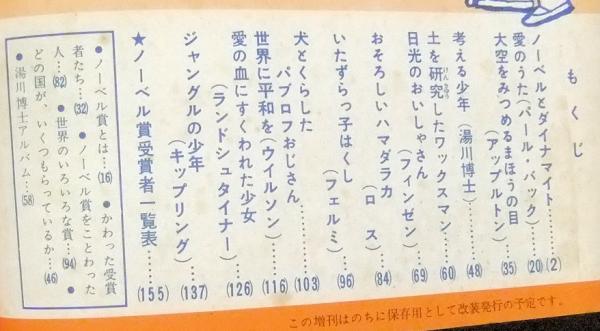 もくじ
ノーベルとダイナマイト……(2)
愛のうた(パール・バック)……(20)
大空をみつめるまほうの目
(アップルトン)……(35)
考える少年(湯川博士)……(48)
土を研究したワックスマン……(60)
日光のおいしゃさん
(フィンゼン)……(69)
おそろしいハマダラカ
(ロス)……(84)
いたずらっ子はくし
(フェルミ)……(96)
犬とくらした
パブロフおじさん……(103)
世界に平和を(ウイルソン)……(116)
愛の血にすくわれた少女
(ランドシュタイナー)……(126)
ジャングルの少年
(キップリング)……(137)
★ノーベル賞受賞者一覧表……(155)
●ノーベル賞とは…(16) ●かわった受賞
者たち…(32) ●ノーベル賞をことわった
人…(82) ●世界のいろいろな賞…(94) ●
どの国が、いくつもらっているか…(46)
●湯川博士アルバム…(58)
この増刊はのちに保存用として改装発行の予定です。